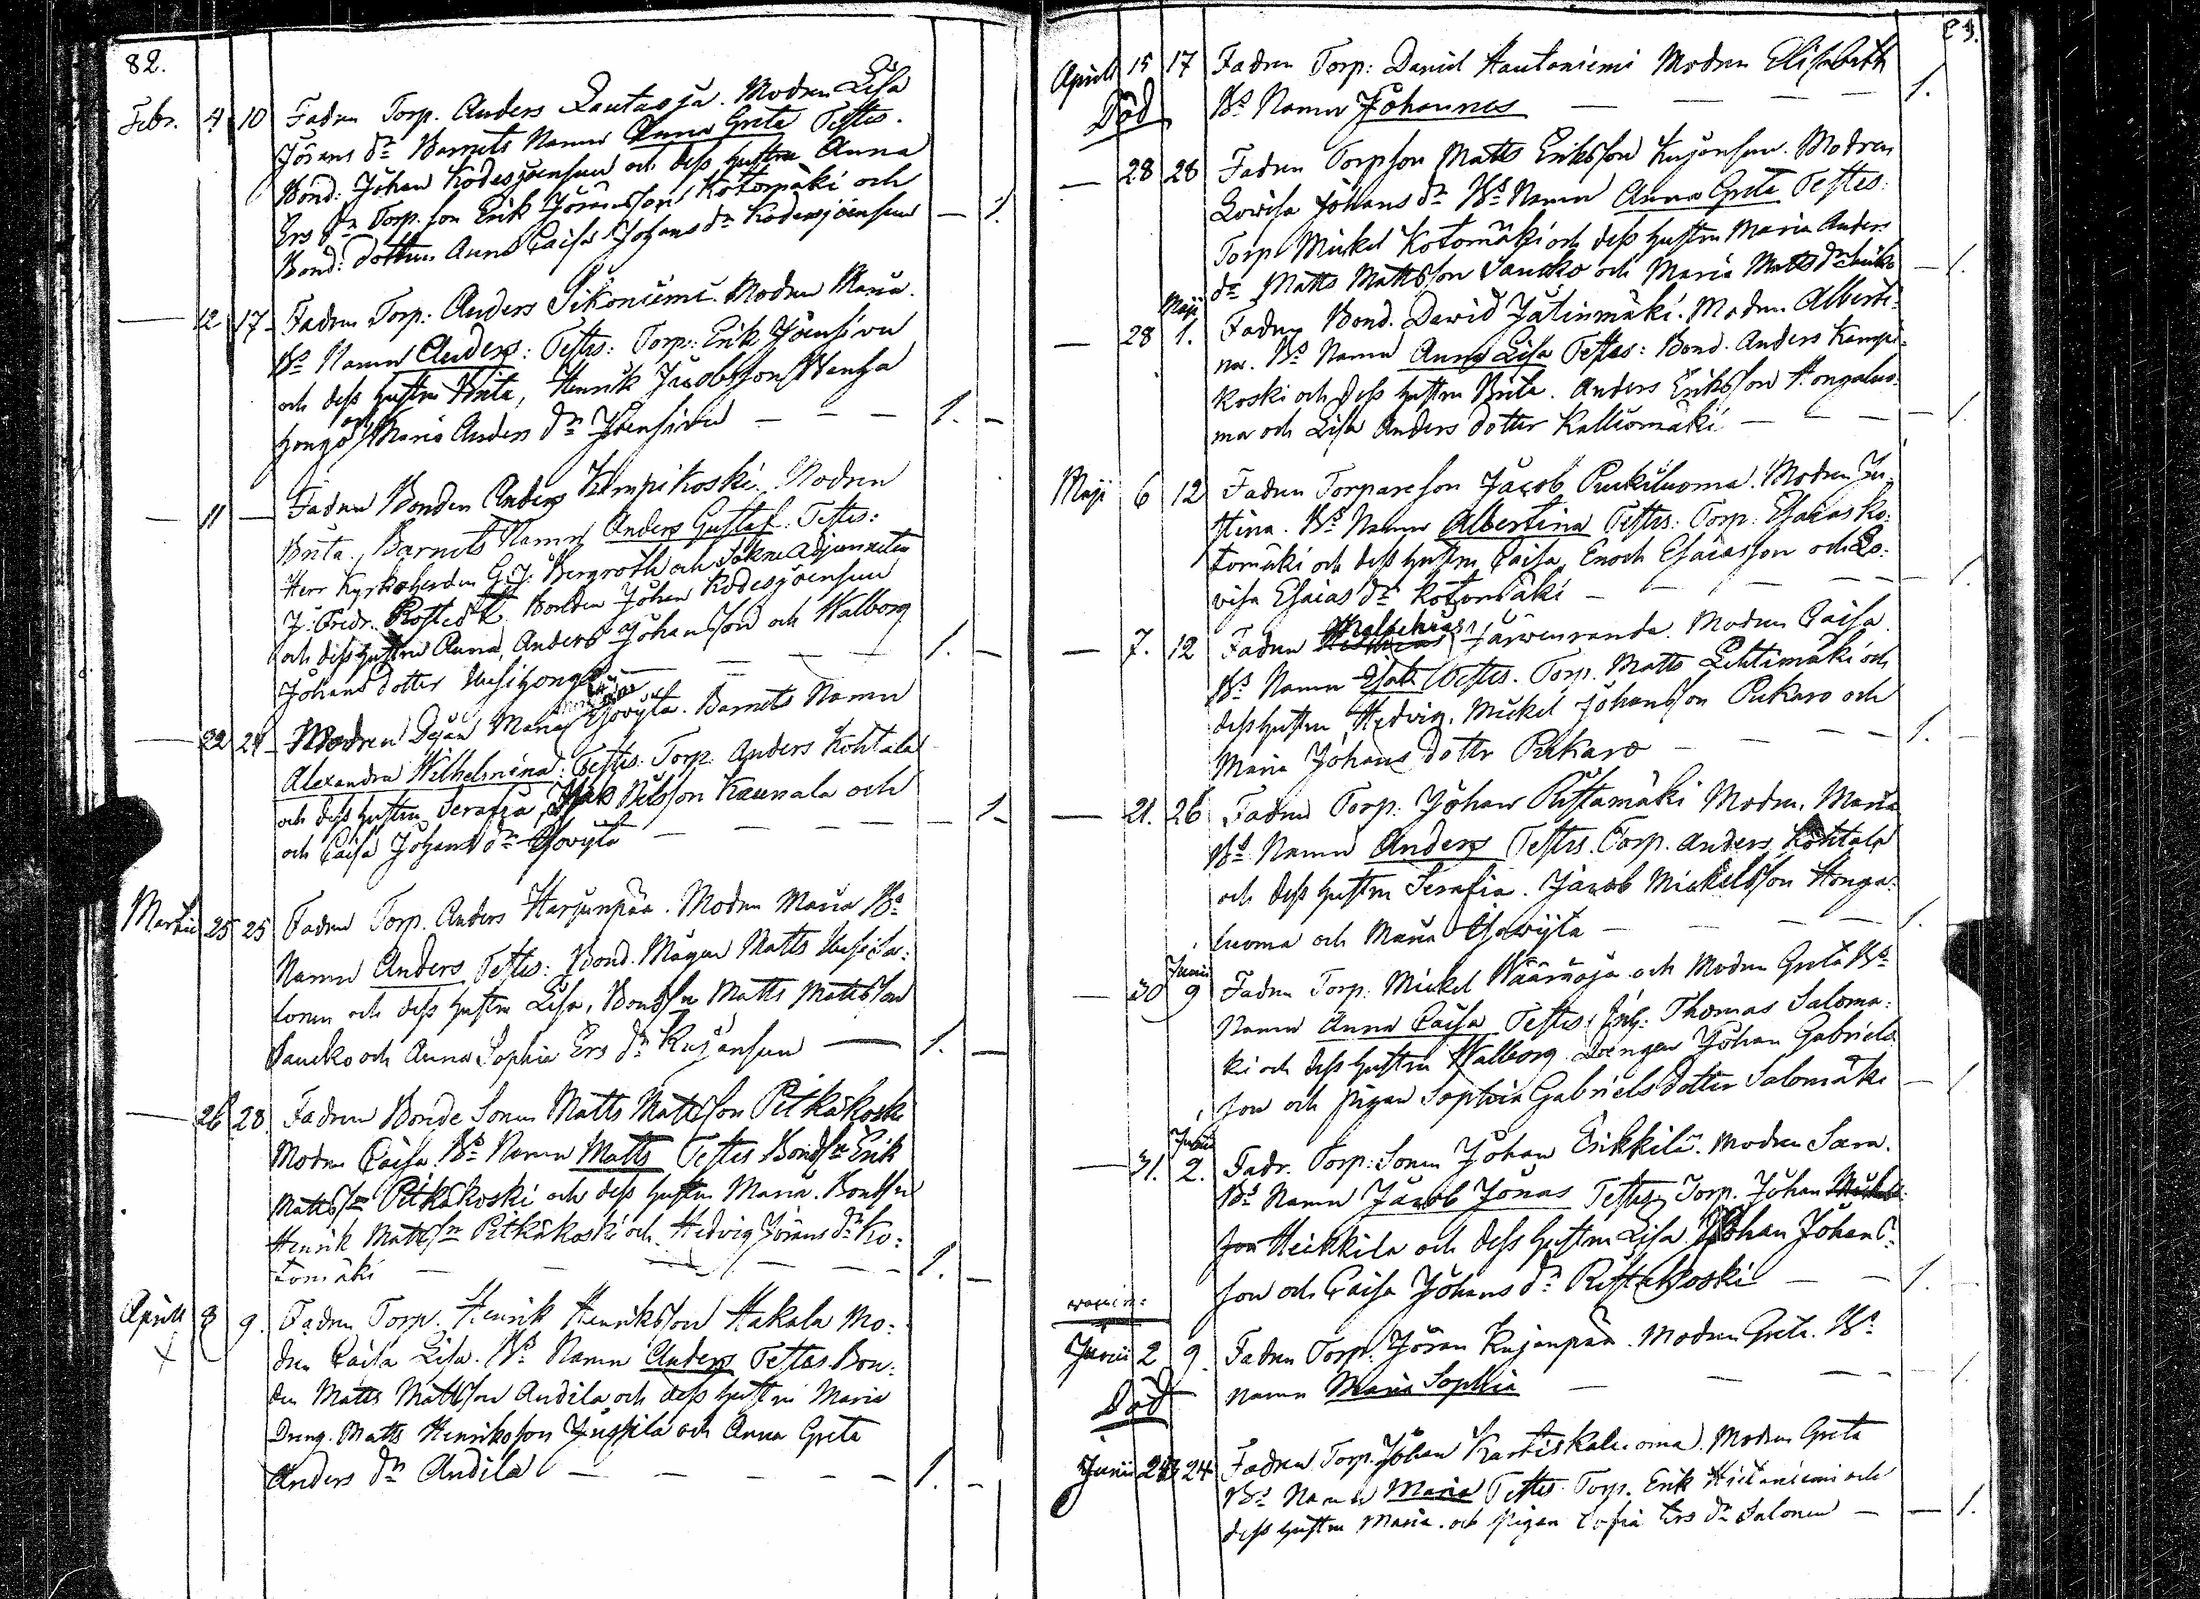 82.
Febr. 4 10 Fadren Torp. Anders Rautaoja. Modren Lisa
Jörans dr Barnets Namn Anna Greta Testes.
Bond: Johan Kodesjoensuu och dess hustru Anna
Ers dr Torp. son Erik Jöransson Kotomäki och
Bond: dottren Anna Caisa Johans dr Kodesjoensuu — 1.
— 12 17 Fadren Torp: Anders Sikoniemi. Modren Maria.
Bs Namn Anders: Testes: Torp: Erik Joensivu
och dess hustru Brita, Henrik Jacobsson Wanha
hongo och Maria Anders dr Joensivu — — — 1. —
— 11 — Fadren Bonden Anders Kampikoski. Modren
Brita. Barnets Namn Anders Gustaf. Testes:
Herr Kyrkoherden G. J. Bergroth och Sokne Adjuncten
J. Fredr. Rostedt. Bonden Johan Kodesjoensuu
och dess hustru Anna, Anders Johansson och Walborg
Johans dotter Uusihongo — — — 1. —
— 22 24 Modren Pigan Maria Yowyta. Barnets Namn
Alexandra Wilhelmina: Testes: Torp: Anders Kohtala
och dess hustru Serafia, Isak Nilsson Kaunala och
och Caisa Johans dr Yowyta — — — — 1.
Martii 25 25 Fadren Torp. Anders Harjunpää. Modren Maria Bs
Namn Anders Testes: Bond. Mågen Matts Uusita-
lonen och dess hustru Lisa, Bondsn Matts Mattsson
Saucko och Anna Sophia Ers dr Kujansuu — 1. —
— 26 28 Fadren Bonde Sonen Matts Mattsson Pitkäkoski
Modren Caisa. Bs Namn Matts Testes Bondsn Erik
Mattssn Pitkäkoski och dess hustru Maria. Bondsn
Henrik Mattssn Pitkäkoski och Hedvig Jörans dr Ko-
tomäki — — — — — 1. —
Aprill 8 9. Fadren Torp. Henrik Henriksson Hakala Mo-
dren Caisa Lisa. Bs Namn Anders Testes. Bon-
den Matts Mattsson Andila och dess hustru Maria
Dreng. Matts Henriksson Jussila och Anna Greta
Anders dr Andila — — — — 1. —
83.
Aprill 15 17 Fadren Torp: David Hautaniemi Modren Elisabeth
Död Bs Namn Johannes — — — 1.
— 28 28 Fadren Torpson Matts Eriksson Kujansuu. Modren
Lovisa Johans dr Bs Namn Anna Greta Testes:
Torp Mickel Kotomäki och dess hustru Maria Anders
dr Matts Mattsson Saucko och Maria Matts dr — 1.
— 28 Maji 1. Fadren Bond. David Jälinmäki. Modren Alberti-
na. Bs Namn Anna Lisa Testes: Bond. Anders Kampi-
koski och dess hustru Brita. Anders Eriksson Hongaluo-
ma och Lisa Anders dotter Kalliomäki — — — 1.
Maji 6 12 Fadren Torpareson Jacob Purkiluoma. Modren Ju-
stina. Bs Namn Albertina Testes: Torp: Esaias Ko-
tomäki och dess hustru Caisa, Enoch Esaiasson och Lo-
visa Esaias dr Kotomäki — — — — 1.
— 7. 12 Fadren Malachias Järwenranda. Modren Caisa.
Bs Namn Esak Testes. Torp. Matts Lehtimäki och
dess hustru Hedvig. Mickel Johansson Pukaro och
Maria Johans dotter Pukaro — — — — 1.
— 21. 26 Fadren Torp. Johan Ristamäki Modren. Maria
Bs Namn Anders Testes. Torp. Anders Kohtala
och dess hustru Serafia. Jacob Mickelsson Honga-
luoma och Maria Yowyta — — — — 1.
— 30 Junii 9 Fadren Torp: Mickel Wäärioja och Modren Greta Bs
Namn Anna Caisa Testes: Inh: Thomas Saloma-
ki och dess hustru Walborg. Drengen Johan Gabriels
son och Pigan Sophia Gabriels Dotter Salomäki — 1.
— 31. Junii 2. Fadr. Torp: Sonen Johan Erikkilä. Modren Sara.
Bs Namn Jacob Jonas Testes Torp. Johan
son Heikkila och dess hustru Lisa Johan Johans-
son och Caisa Johans dr Ristakoski — — 1.
Junii 2 9. Fadren Torp: Jöran Kujanpää. Modren Greta. Bs
Död Namn Maria Sophia — — — 1.
Junii 23 24 Fadren Torp. Johan Kurtiskaluoma. Modren Greta
Bs Namn Maria Testes Torp. Erik Hietaniemi och
dess hustru Maria. och Pigan Sofia Ers dr Salonen — — 1.